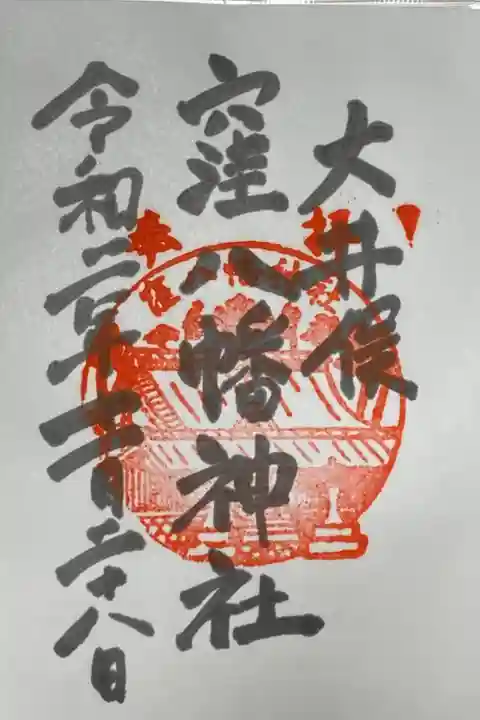 大井俣
窪八幡神社
令和二年二月二十八日
奉拝